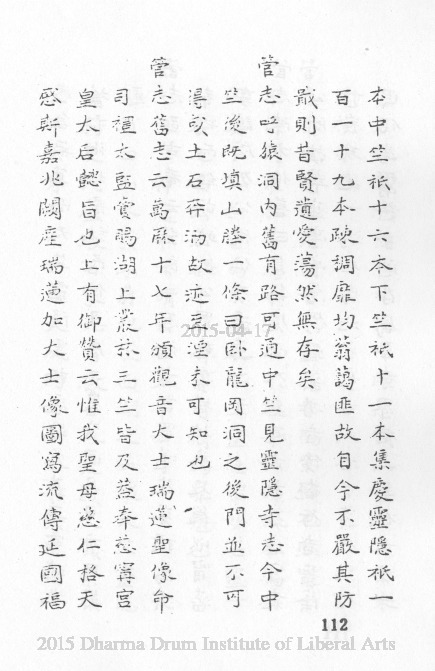 本中竺祇十六本下竺祇十一本集慶靈隱祇一
百一十九本疎稠靡均蓊藹匪故自今不嚴其防
戢則昔賢遺愛蕩然無存矣
管志呼猿洞內舊有路可通中竺見靈隱寺志今中
竺後既填山塍一條曰卧龍岡洞之後門並不可
得或土石弄沏故迹湮未可知也
管志舊志云萬厤十七年頒觀音大士瑞蓮聖像命
司禮太監賫賜湖上叢林三竺皆及葢奉慈寗宮
皇太后懿旨也上有御贊云惟我聖母慈仁格天
感斯嘉兆闕產瑞蓮加大士像圖寫流傳延國福
2015-04-17
112
2015 Dharma Drum Institute of Liberal Arts